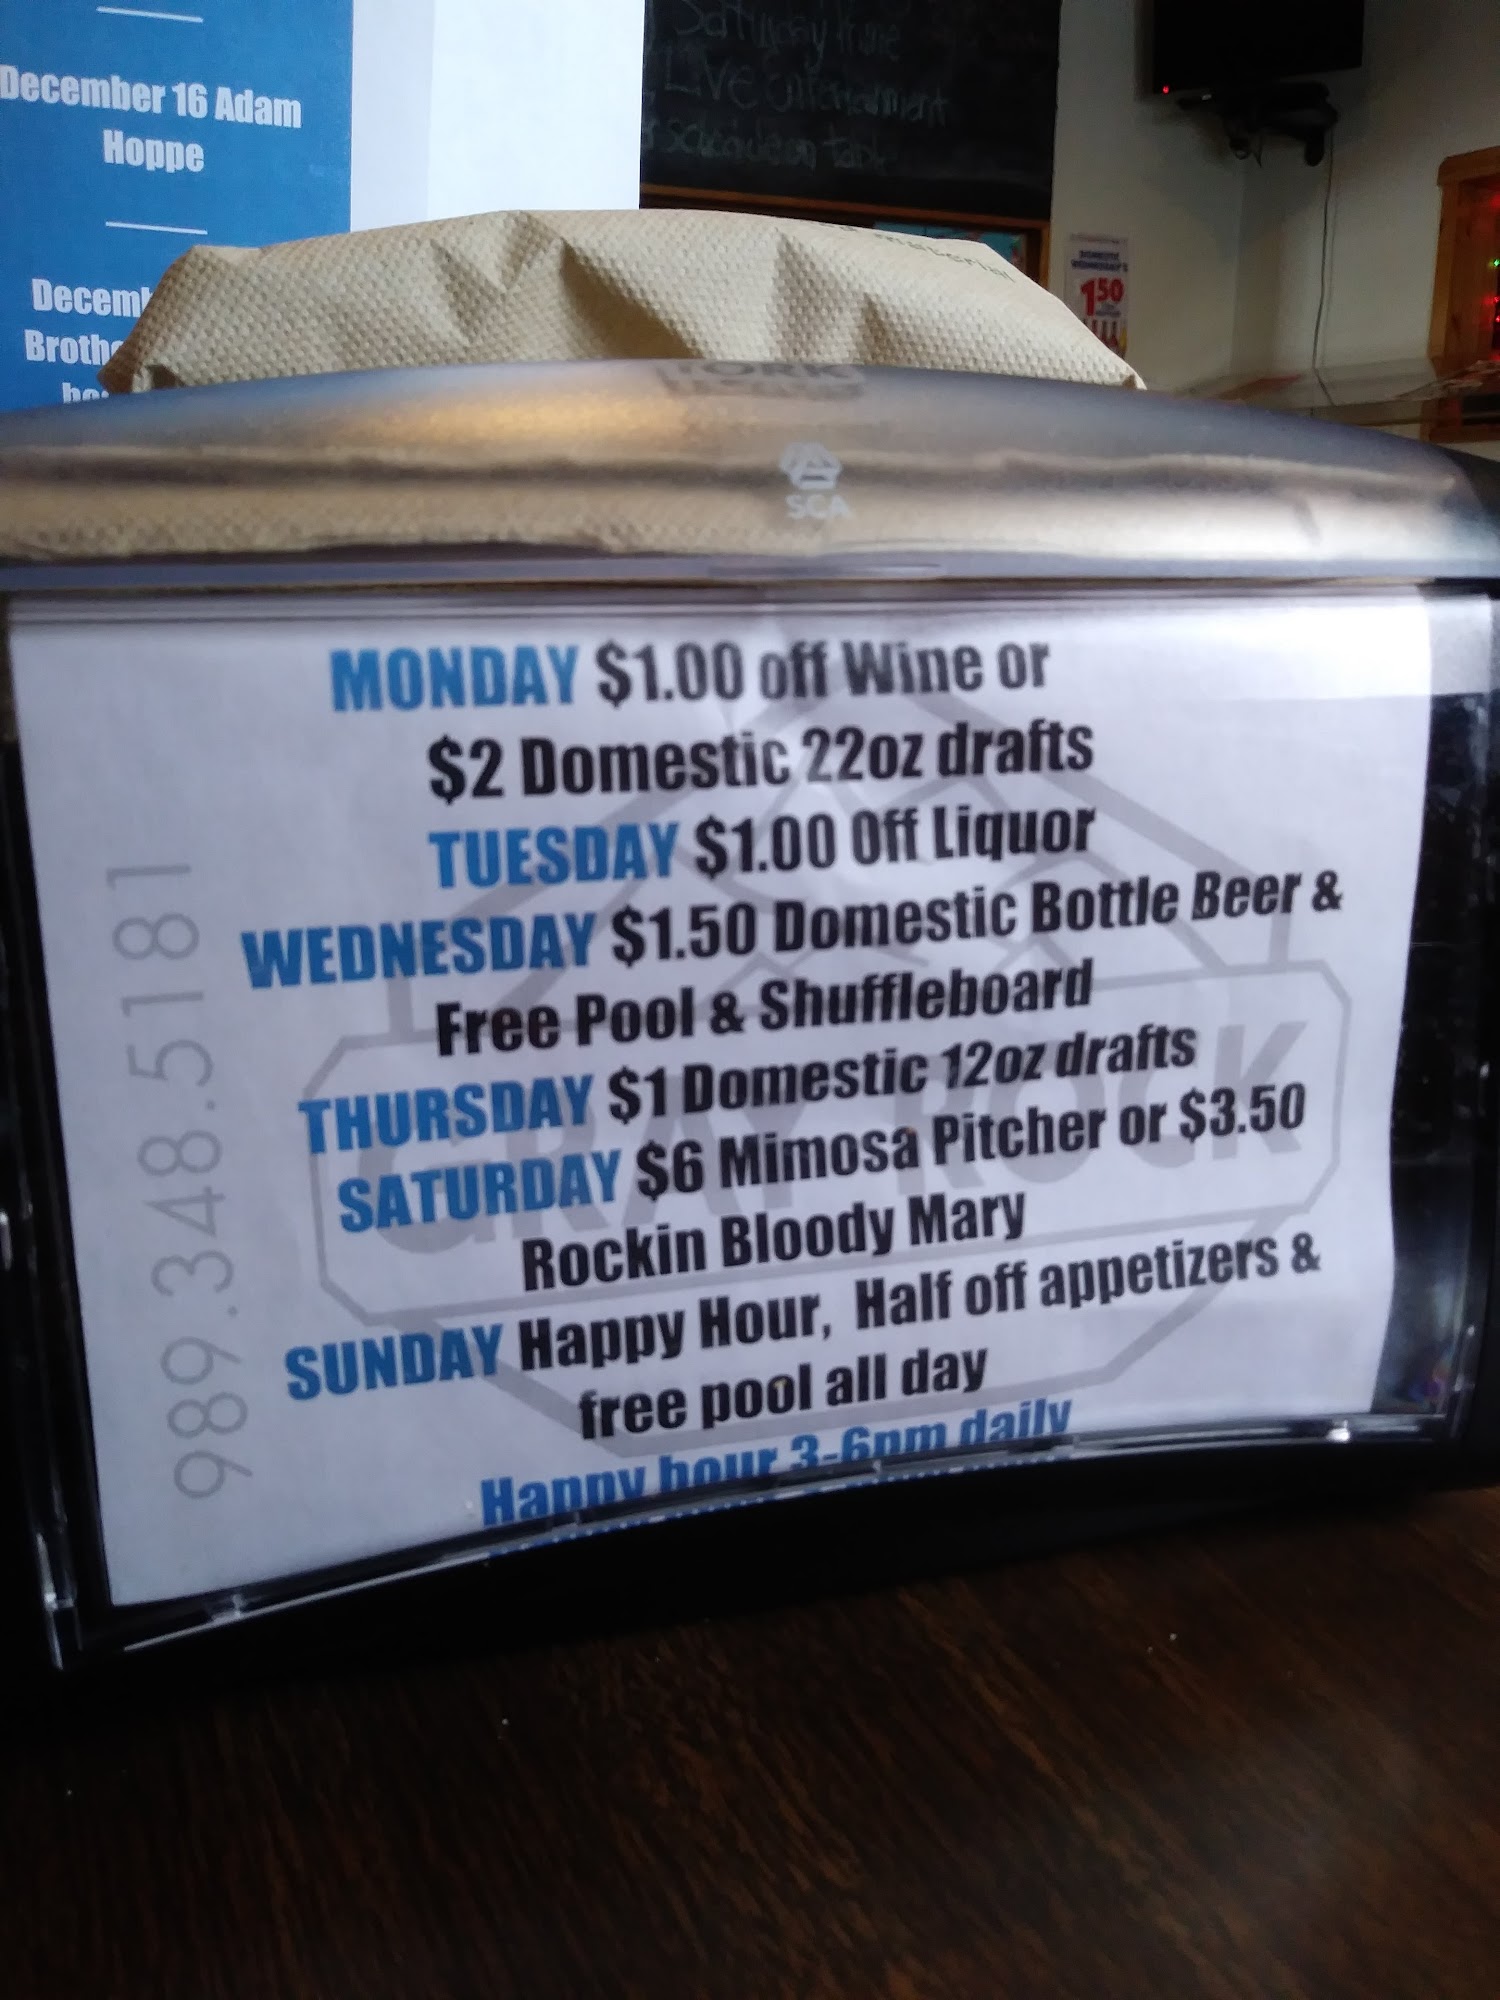 December 16 Adam
Hoppe
Saturday
Live entertainment
schedule on table
1.50
SCA
MONDAY $1.00 off Wine or
$2 Domestic 22oz drafts
TUESDAY $1.00 Off Liquor
WEDNESDAY $1.50 Domestic Bottle Beer &
Free Pool & Shuffleboard
THURSDAY $1 Domestic 12oz drafts
SATURDAY $6 Mimosa Pitcher or $3.50
Rockin Bloody Mary
SUNDAY Happy Hour, Half off appetizers &
free pool all day
Happy hour 3-6pm daily
989.348.5181
GRAY ROCK